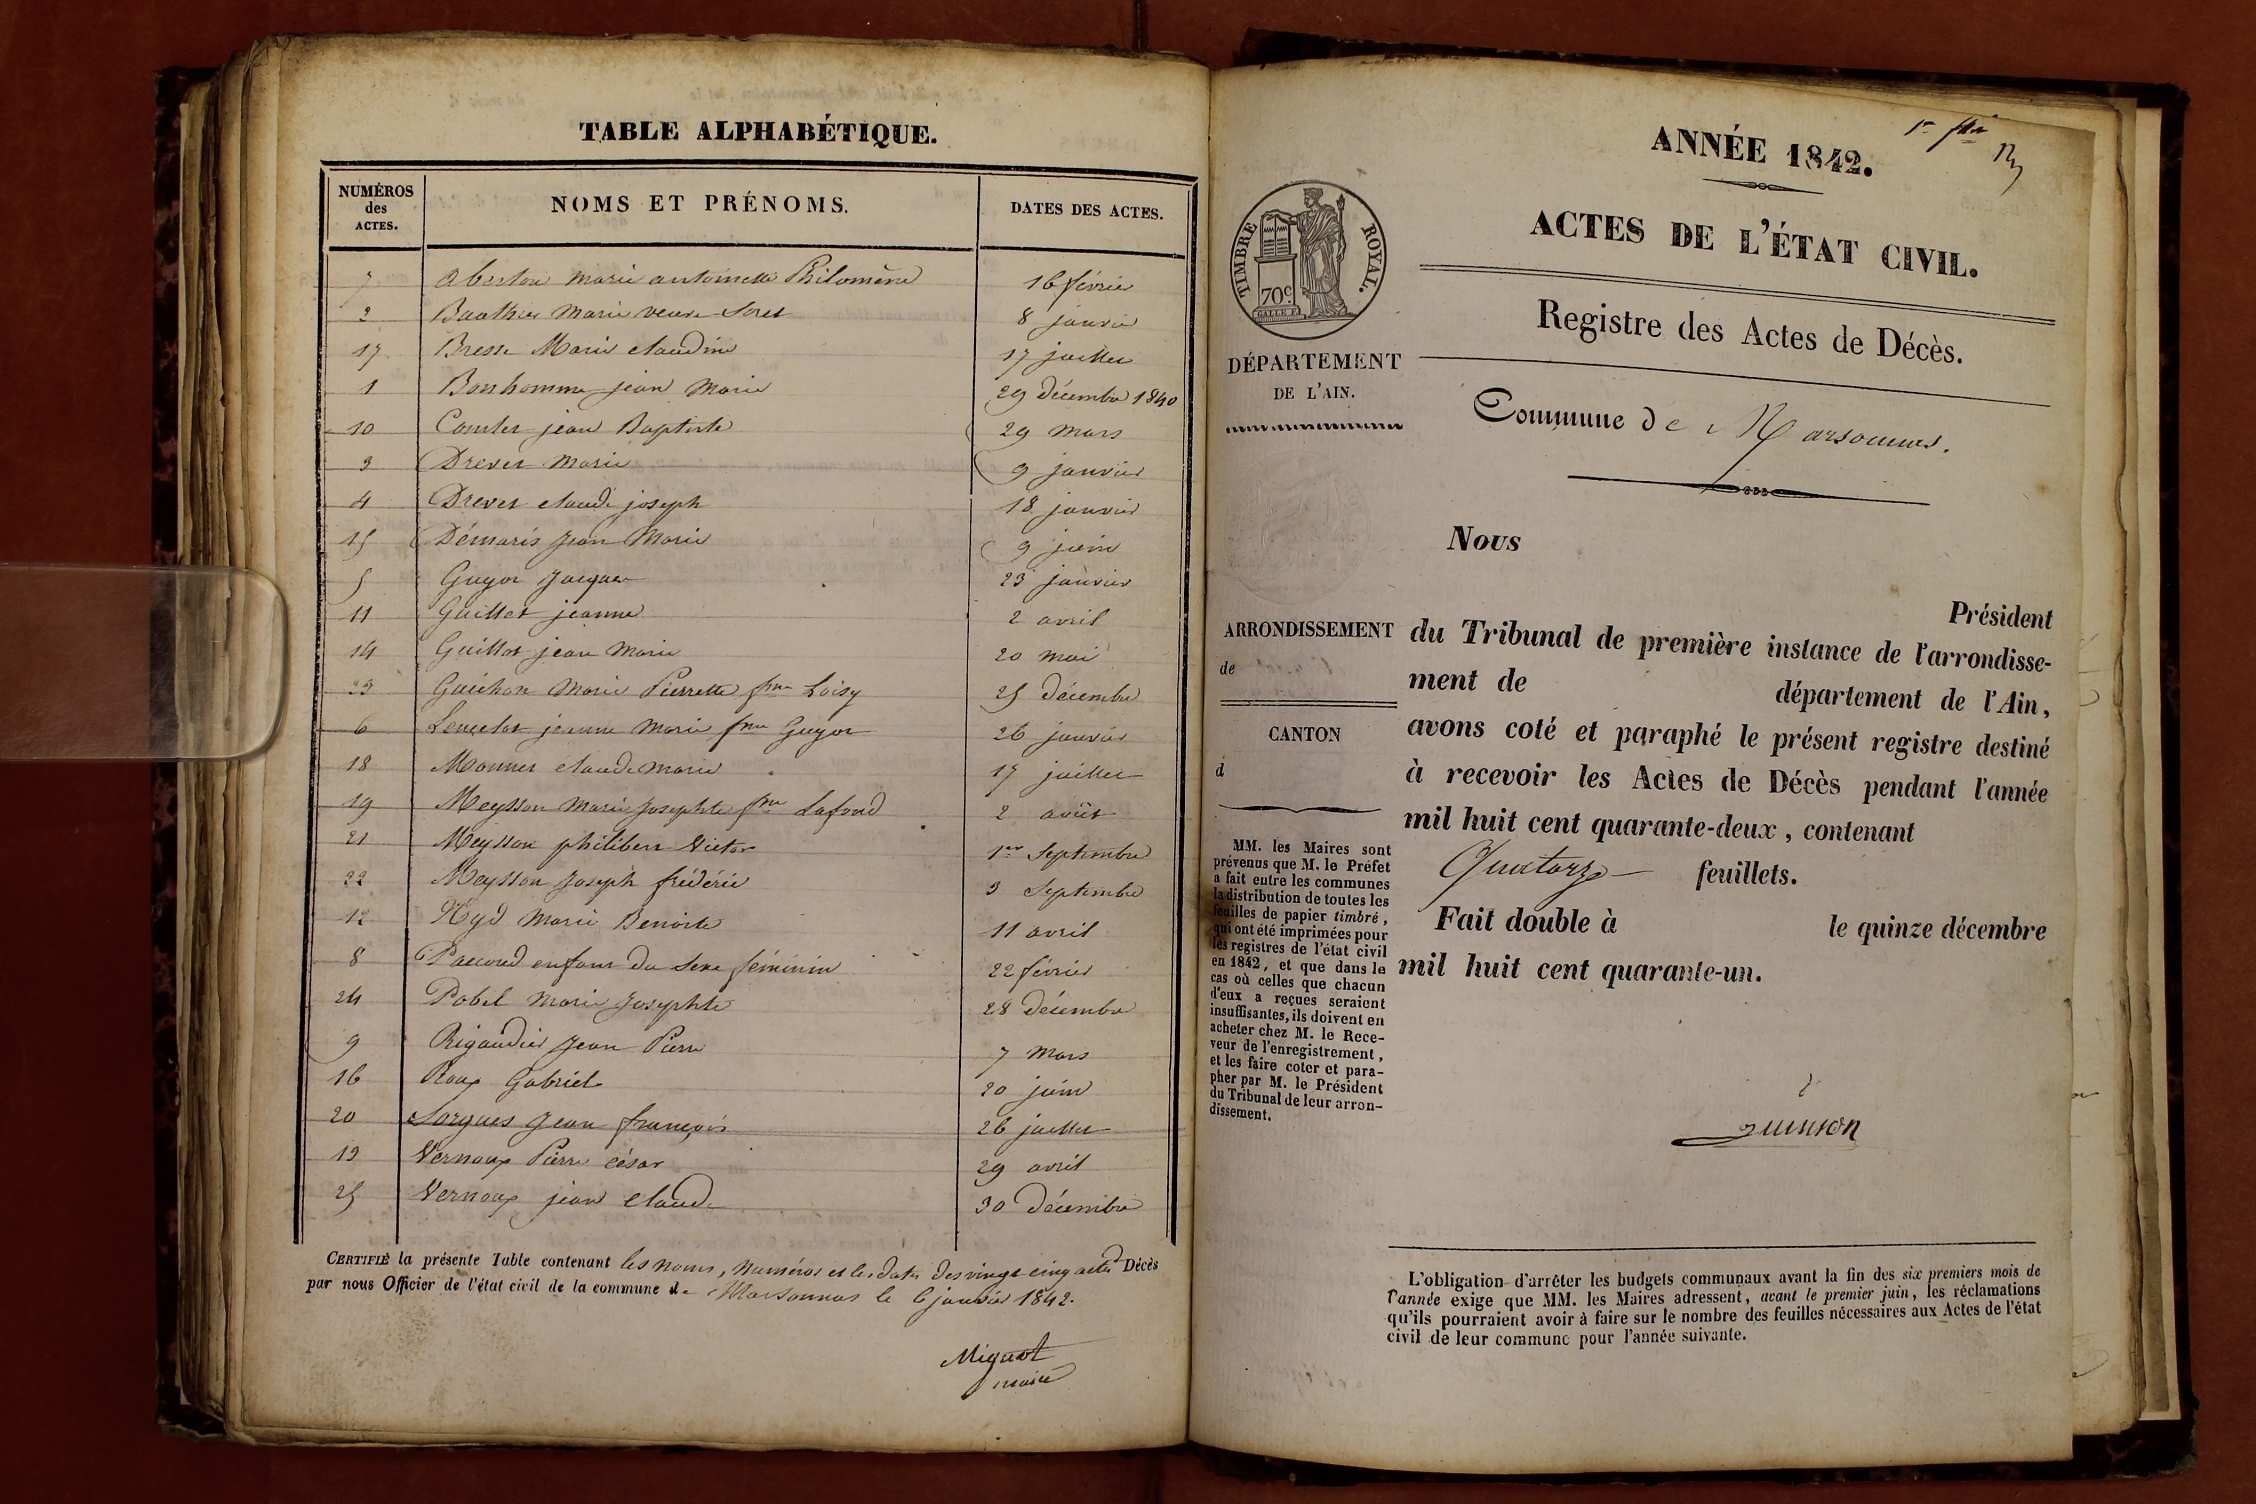 TABLE ALPHABÉTIQUE.
NUMÉROS des ACTES. NOMS ET PRÉNOMS. DATES DES ACTES.
7 Marie antoinette Philomène 16 février
2 Bauthier Marie veuve Soret 8 janvier
17 Bresse Marie claudine 17 juillet
1 Bonhomme jean Marie 29 décembre 1840
10 Comtet jean Baptiste 29 mars
3 Drevet Marie 9 janvier
4 Drevet claude joseph 18 janvier
15 Démaris Jean Marie 9 juin
5 Guyon Jacques 23 janvier
11 Guillot jeanne 2 avril
14 Guillot jean Marie 20 mai
23 Guichon Marie Pierrette fme Loisy 25 décembre
6 jeanne Marie fme Guyon 26 janvier
18 Monnet claude marie 17 juillet
19 Meysson Marie Josephte fme Lafond 2 août
21 Meysson philibert Victor 1er Septembre
22 Meysson Joseph frédéric 3 Septembre
12 Nyd Marie Benoite 11 avril
8 Paccoud enfant du Sexe féminin 22 février
24 Pobel Marie Josephte 28 décembre
9 Rigaudier Jean Pierre 7 Mars
16 Roux Gabriel 20 juin
20 Sorgues Jean françois 26 juillet
13 Vernoux Pierre césar 29 avril
25 Vernoux jean claude 30 décembre
CERTIFIÉ la présente Table contenant les noms, Numéros et les dates des vingt cinq actes Décès
par nous Officier de l'état civil de la commune de Marsonnas le 6 janvier 1842.
Miguot
maire
ANNÉE 1842.
ACTES DE L'ÉTAT CIVIL.
TIMBRE ROYAL.
70c
Registre des Actes de Décès.
DÉPARTEMENT
DE L'AIN.
Commune de Marsonnas.
Nous
Président
ARRONDISSEMENT
de
CANTON
d
du Tribunal de première instance de l'arrondisse-
ment de département de l'Ain,
avons coté et paraphé le présent registre destiné
à recevoir les Actes de Décès pendant l'année
mil huit cent quarante-deux, contenant
Quatorze feuillets.
Fait double à le quinze décembre
mil huit cent quarante-un.
MM. les Maires sont
prévenus que M. le Préfet
a fait entre les communes
la distribution de toutes les
feuilles de papier timbré,
qui ont été imprimées pour
les registres de l'état civil
en 1842, et que dans le
cas où celles que chacun
d'eux a reçues seraient
insuffisantes, ils doivent en
acheter chez M. le Rece-
veur de l'enregistrement,
et les faire coter et para-
pher par M. le Président
du Tribunal de leur arron-
dissement.
L'obligation d'arrêter les budgets communaux avant la fin des six premiers mois de
l'année exige que MM. les Maires adressent, avant le premier juin, les réclamations
qu'ils pourraient avoir à faire sur le nombre des feuilles nécessaires aux Actes de l'état
civil de leur commune pour l'année suivante.